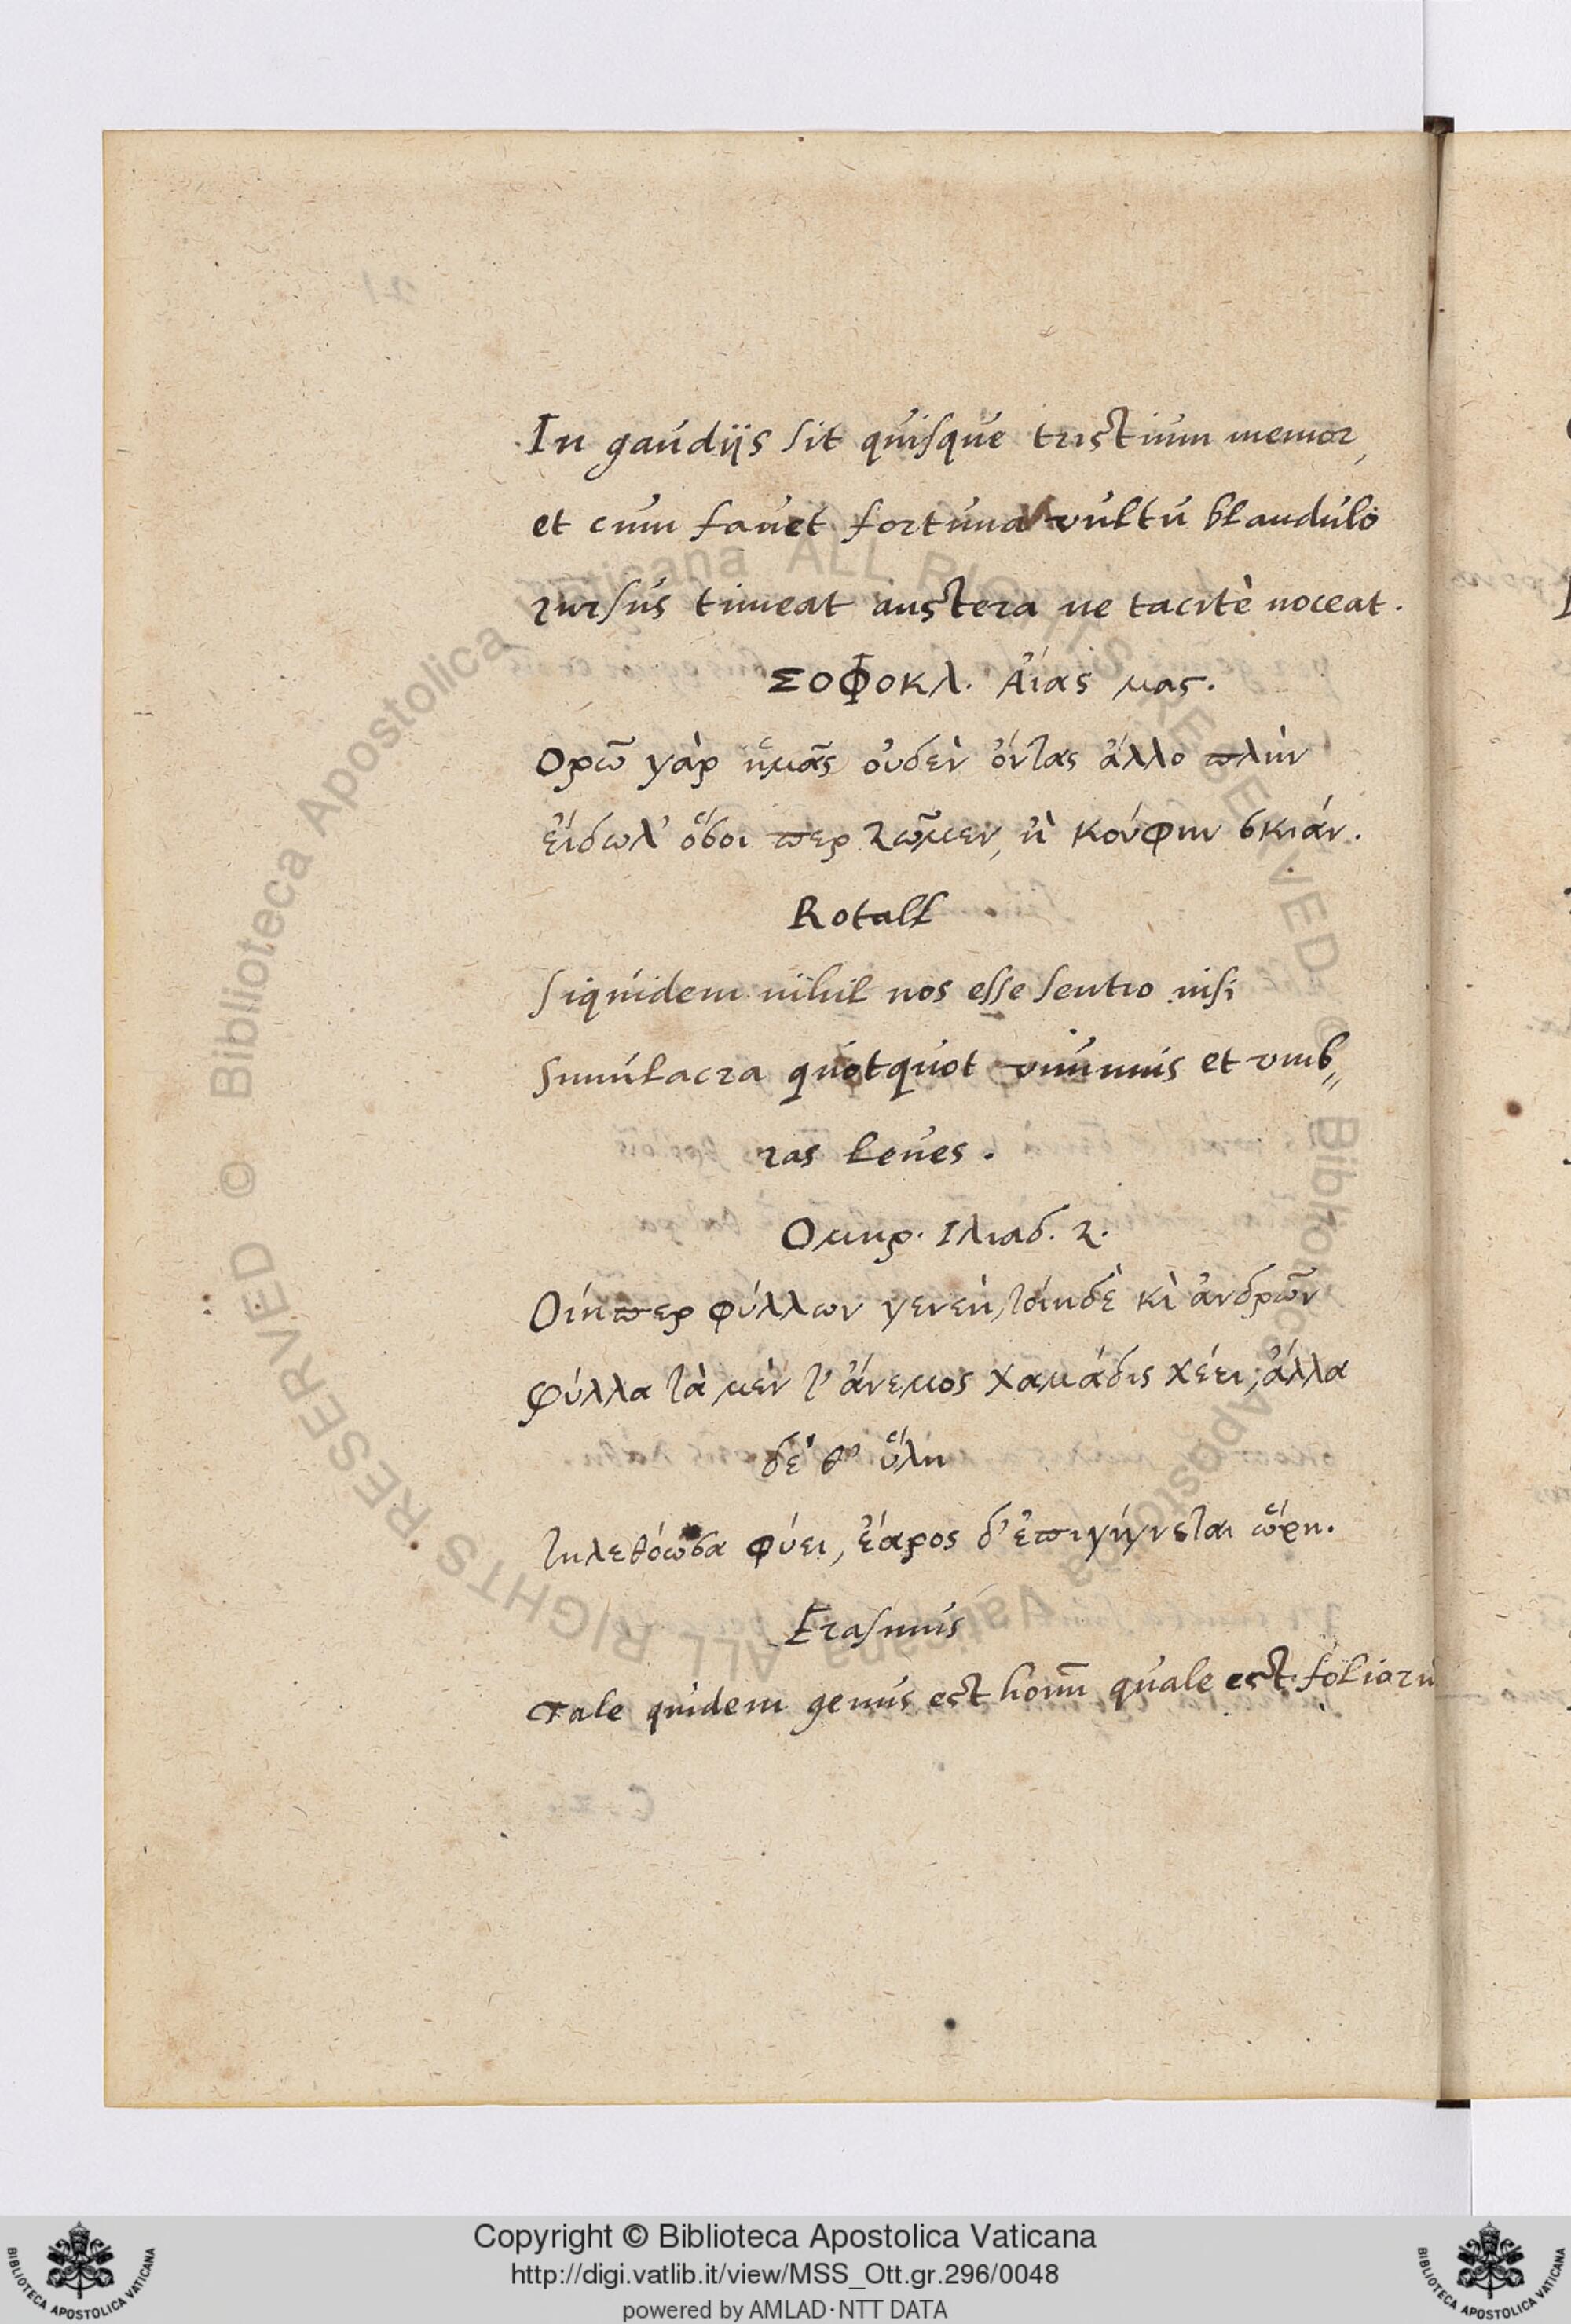 In gaudijs sit quisque tristium memor,
et cum fauet fortuna vultu blandulo
rursus timeat austera ne tacitè noceat.
ΣΟΦΟΚΛ. Αἴας μας.
Ορῶ γὰρ ἡμᾶς οὐδὲν ὄντας ἄλλο πλὴν
εἴδωλ' ὅσοι περ ζῶμεν, ἢ κούφην σκιάν.
Rotall
Siquidem nihil nos esse sentio nisi
Simulacra quotquot viuimus et vmb„
ras leues.
Ομηρ. Ιλιαδ. ζ.
Οἵη περ φύλλων γενεὴ, τοίηδὲ κὶ ἀνδρῶν
φύλλα τὰ μὲν τ' ἄνεμος χαμάδις χέει; ἄλλα
δέ θ' ὕλη
τηλεθόωσα φύει, ἔαρος δ' ἐπιγίγνεται ὥρη.
Erasmus
Tale quidem genus est homī quale est foliorū
Copyright © Biblioteca Apostolica Vaticana
http://digi.vatlib.it/view/MSS_Ott.gr.296/0048
powered by AMLAD·NTT DATA
© Biblioteca Apostolica Vaticana ALL RIGHTS RESERVED
© Biblioteca Apostolica Vaticana ALL RIGHTS RESERVED
BIBLIOTECA APOSTOLICA VATICANA
BIBLIOTECA APOSTOLICA VATICANA